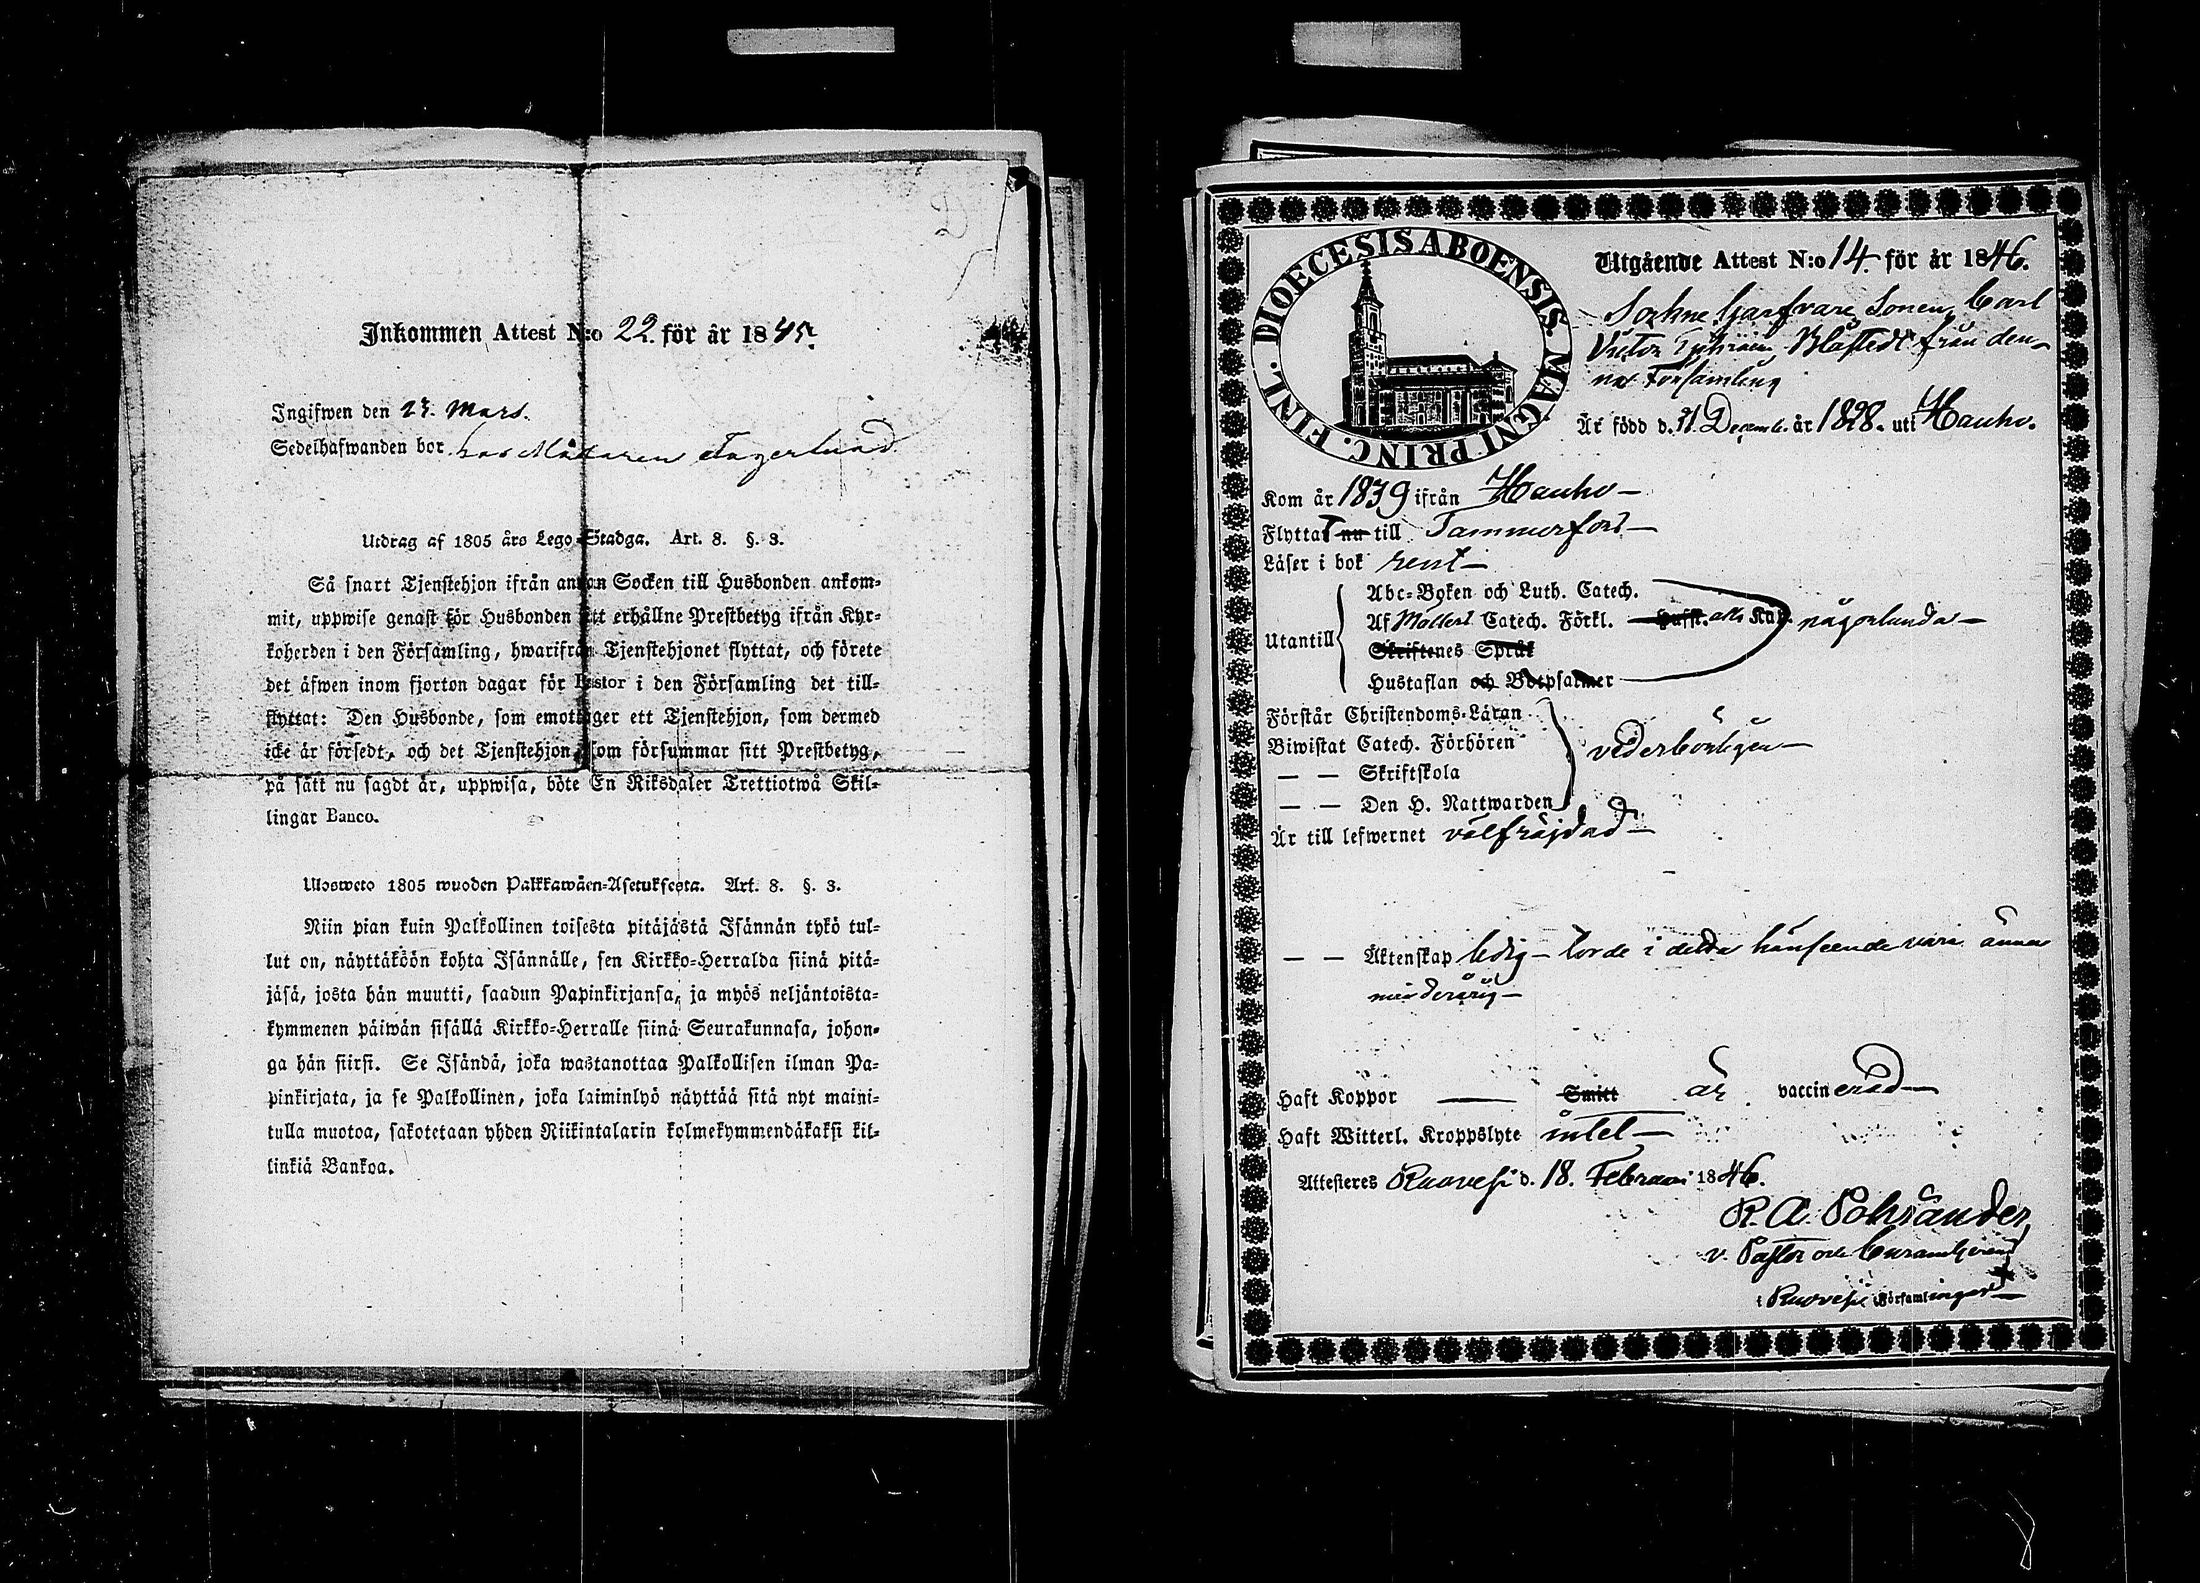 Inkommen Attest N:o 22. för år 1845.
Ingifwen den 23. Mars.
Sedelhafwanden bor hos Målaren Fagerlund
Utdrag af 1805 års Lego-Stadga. Art. 8. §. 3.
Så snart Tjenstehjon ifrån annan Socken till Husbonden ankom-
mit, uppwise genast för Husbonden sitt erhållne Prestbetyg ifrån Kyr-
koherden i den Församling, hwarifrån Tjenstehjonet flyttat, och förete
det äfwen inom fjorton dagar för Pastor i den Församling det till-
flyttat: Den Husbonde, som emottager ett Tjenstehjon, som dermed
icke är försedt, och det Tjenstehjon, som försummar sitt Prestbetyg,
på sätt nu sagdt är, uppwisa, böte En Riksdaler Trettiotwå Skil-
lingar Banco.
Ulosweto 1805 wuoden Palkkawäen-Asetuksesta. Art. 8. §. 3.
Niin pian kuin Palkollinen toisesta pitäjästä Isännän tykö tul-
lut on, näyttäköön kohta Isännälle, sen Kirkko-Herralda siinä pitä-
jäsä, josta hän muutti, saadun Papinkirjansa, ja myös neljäntoista-
kymmenen päiwän sisällä Kirkko-Herralle siinä Seurakunnasa, johon-
ga hän siirsi. Se Isändä, joka wastanottaa Palkollisen ilman Pa-
pinkirjata, ja se Palkollinen, joka laiminlyö näyttää sitä nyt maini-
tulla muotoa, sakotetaan yhden Riikintalarin kolmekymmendäkaksi kil-
linkiä Bankoa.
DIOECESIS ABOENSIS MAGNI PRINC. FINL.
Utgående Attest N:o 14. för år 1846.
Sockne Garfvare Sonen Carl
Victor Blåfledt från den-
na Församling
Är född d. 31. Decemb. år 1828. uti Hauho.
Kom år 1839 ifrån Hauho
Flyttat nu till Tammerfors
Läser i bok rent
Utantill
Abc-Boken och Luth. Catech.
Af Möllers Catech. Förkl. Hufst.
Skriftenes Språk
Hustaflan och Botpsalmer
någorlunda
Förstår Christendoms-Läran
Biwistat Catech. Förhören
— — Skriftskola
— — Den H. Nattwarden
vederbörligen
Är till lefwernet välfräjdad
— — Äktenskap ledig - torde i detta hänseende vara ännu
minderårig
Haft Koppor — Smitt är vaccinerad
Haft Witterl. Kroppslyte intet
Attesteres Ruovesi d. 18. Februari 1846.
R. A. Pohjander,
v. Pastor och
i Ruovesi Församlingar